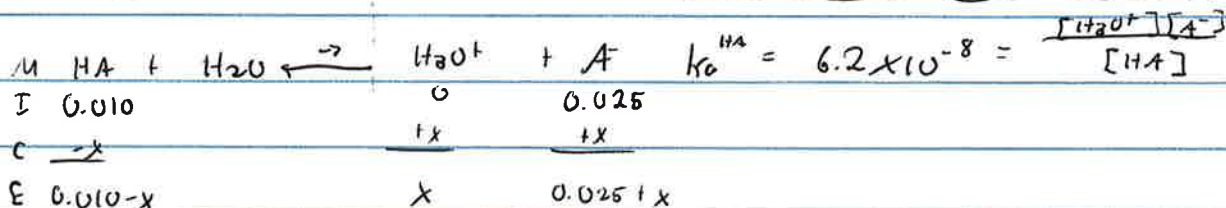 [H3O+][A-]
M HA + H2O ⇄ H3O+ + A- Ka^HA = 6.2 x10^-8 = [HA]
I 0.010 0 0.025
C -x +x +x
E 0.010-x x 0.025+x